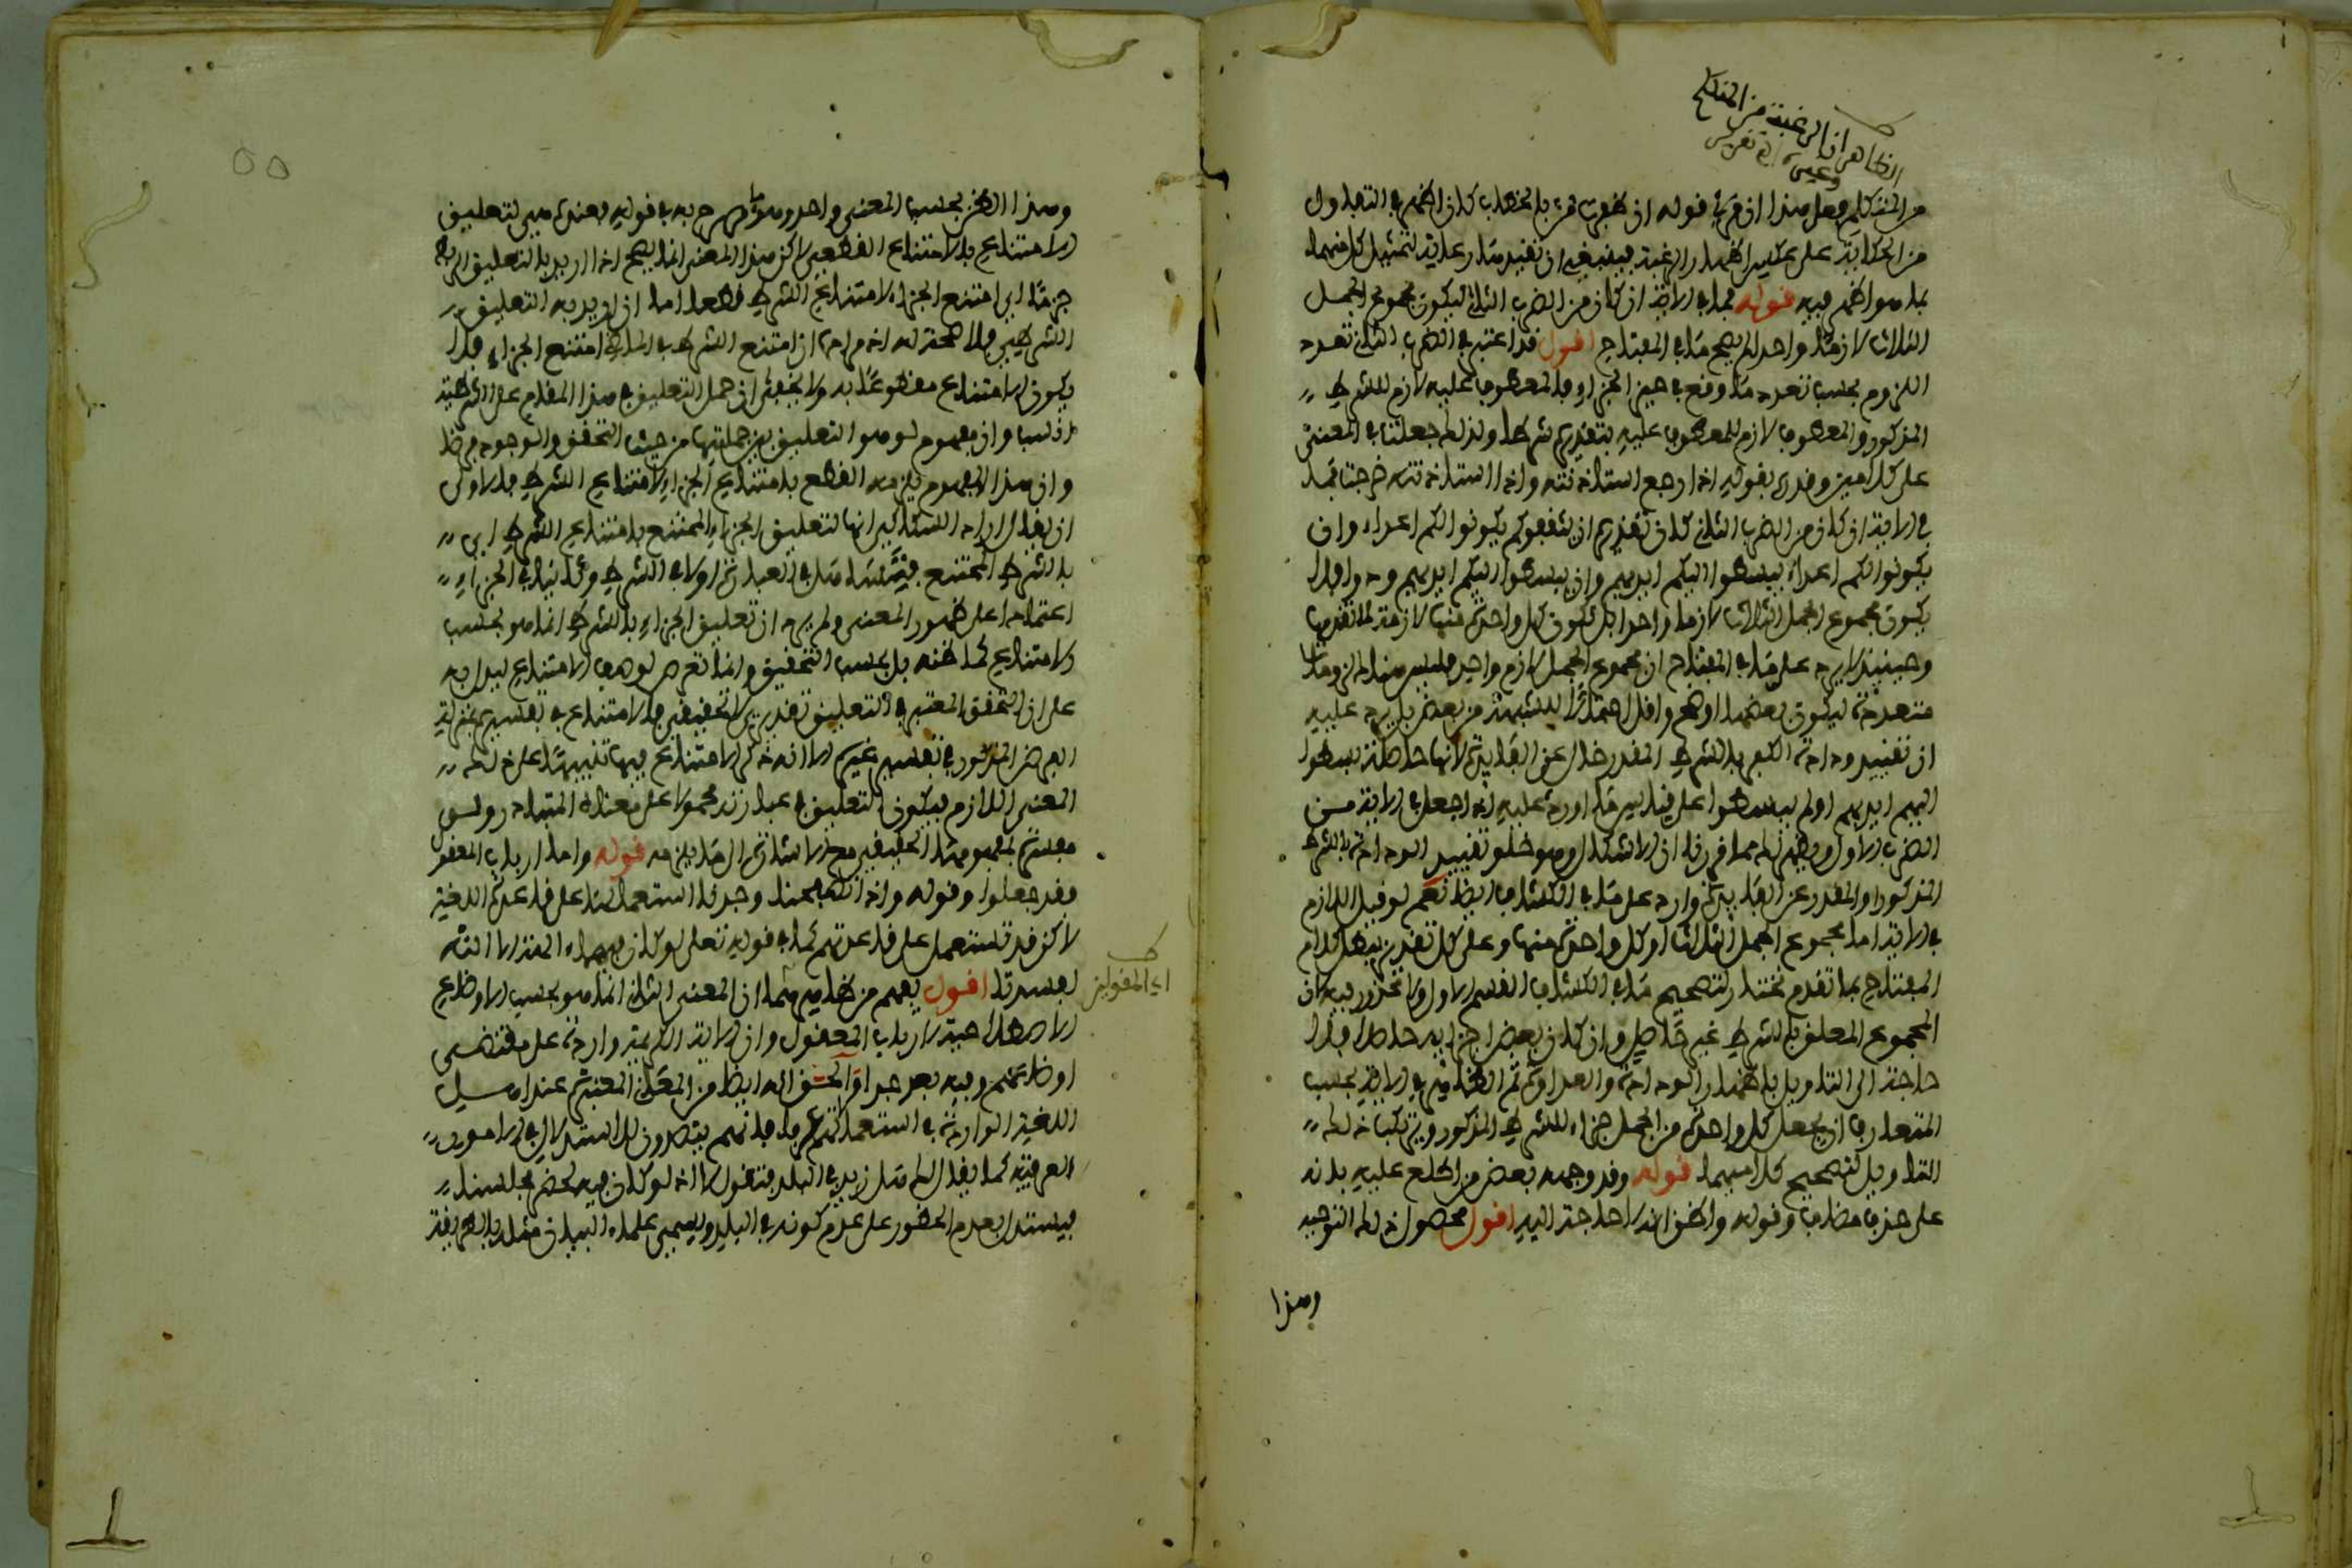 الظاهر ان الرغبة من المتكلم
من المتكلم فعل هذا ان قرئ قوله ان ظفرت بالخطاب كان اظهر في التفاول
من الحكاية على عكس اظهار الرغبة فينبغي ان تفيد رعاية لتمثيل كل منهما
بما هو اظهر فيه قوله فما في الاية ان كان من الضرب الثاني ليكون مجموع الجمل
الثلاث لازما واحد لم يصح ما في المفتاح اقول قد اعتبر في الضرب الثاني تعدد
اللزوم بحسب تعدد ما وقع في حيز الجزاء فالمعطوف عليه لازم للشرط
المذكور والمعطوف لازم للمعطوف عليه بتقديره شرطا ولذلك جعلنا في المعنى
على كلامين وقدر بقوله اذا رجع استاذنته واذا استاذنته خرجت فما
في الاية ان كان من الضرب الثاني كان تقديره ان يثقفوكم يكونوا لكم اعداء وان
يكونوا لكم اعداء يبسطوا اليكم ايديهم وان يبسطوا اليكم ايديهم ودوا فلا
يكون مجموع الجمل الثلاث لازما واحدا بل يكون كل واحدة منها لازمة لما تقدمها
وحينئذ لا يرد على ما في المفتاح ان مجموع الجمل لازم واحد فليس هناك لزومات
متعددة ليكون بعضها اوضح واقل احتمالا للشبهة من بعض بل يرد عليه
ان تقييد ودادة الكفر بالشرط المقدر خال عن الفايدة لانها حاصلة بسطوا
اليهم ايديهم او لم يبسطوا على قياس ما اورد عليه اذا جعل في الاية من
الضرب الاول ويظهر لك مما قررنا ان الاشكال وهو خلو تقييد الودادة بالشرط
المذكور او المقدر عن الفايدة وارد على ما في الكشاف ايضا نعم لو قيل اللازم
في الاية اما مجموع الجمل الثلاث او كل واحدة منها وعلى كل تقدير يبطل كلام
المفتاح بما تقدم نختار لتصحيح ما في الكشاف القسم الاول ولا محذور فيه لان
المجموع المعلق بالشرط غير حاصل وان كان بعض اجزايه حاصلا فلا
حاجة الى التاويل باظهار الودادة والعداوة ثم الظاهر في الاية بحسب
المتعارف ان يجعل كل واحدة من الجمل جزاء للشرط المذكور ويرتكب ذلك
التاويل لتصحيح كلاميهما قوله وقد وجهه بعض من اطلع عليه بانه
على حذف مضاف وقوله واظن ان لا حاجة اليه اقول محصول ذلك التوجيه
وهذا
وهذا الظن بحسب المعنى واحد وهو ما صرح به في قوله وعندي هي لتعليق
الامتناع بالامتناع القطعي لاكن هذا المعنى انما يصح اذا اريد بالتعليق الربط
جزما اي امتنع الجزاء لامتناع الشرط قطعا اما ان اريد به التعليق
الشرطي فلا صحة له اذ مراده ان امتنع الشرط في الماضي امتنع الجزاء فلا
يكون الامتناع مقطوعا به ولا يخفى ان حمل التعليق في هذا المقام على الشرطية
انسب وان مفهوم لو هو التعليق بين جملتيها من حيث التحقق والوجود فرضا
وان هذا المفهوم يلزمه القطع بامتناع الجزاء لامتناع الشرط فالاولى
ان يقال اراد السكاكي انها لتعليق الجزاء الممتنع بامتناع الشرط اي
بالشرط الممتنع فتسامح في العبارة اولا في الشرط وثانيا في الجزاء
اعتمادا على ظهور المعنى ولم يرد ان تعليق الجزاء بالشرط انما هو بحسب
الامتناع كما ظنه بل بحسب التحقيق وانما تعرض لوصف الامتناع ليدل به
على ان التحقق المعتبر في التعليق تقديري لا تحقيقي فالامتناع في تفسيره بمنزلة
الفرض المذكور في تفسير غيره الا انه ذكر الامتناع فيها تنبيها على ذلك
المعنى اللازم فيكون التعليق في عبارته محمولا على معناه المتبادر ولو
مفسرة بمفهومها الحقيقي مع الاشارة الى ما يلزمه قوله واما ارباب المعقول
فقد جعلوا وقوله واذا تصفحنا وجدنا استعمالها على قاعدة اللغة
لاكن قد تستعمل على قاعدتهم كما في قوله تعلى لو كان فيهما ءالهة الا الله
لفسدتا اقول يفهم من ظاهرهما ان المعنى الثاني انما هو بحسب الاوضاع
الاصطلاحية لارباب المعقول وان الاية الكريمة واردة على مقتضى
اوضاعهم وفيه بعد جدا والحق انه ايضا من المعاني المعتبرة عند اهل
اللغة الواردة في استعمالاتهم عرفا فانهم يقصدون الاستدلال في الامور
العرفية كما يقال لك هل زيد في البلد فتقول لا اذ لو كان فيه لحضر مجلسنا
فيستدل بعدم الحضور على عدم كونه في البلد ويسمى علماء البيان مثله بالطريقة
اي المعقولين